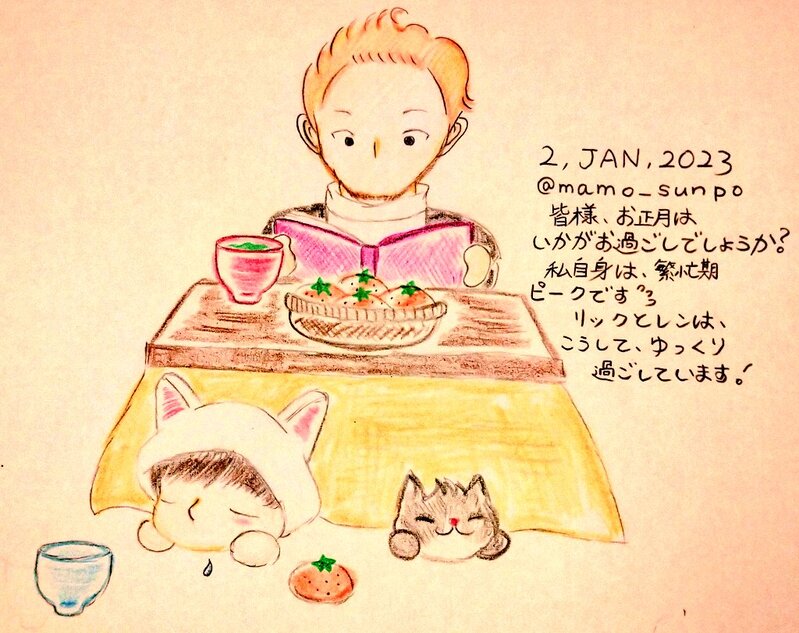 2, JAN, 2023
@mamo_sunpo
皆様、お正月は
いかがお過ごしでしょうか?
私自身は、繁忙期
ピークです
リックとレンは、
こうして、ゆっくり
過ごしています!